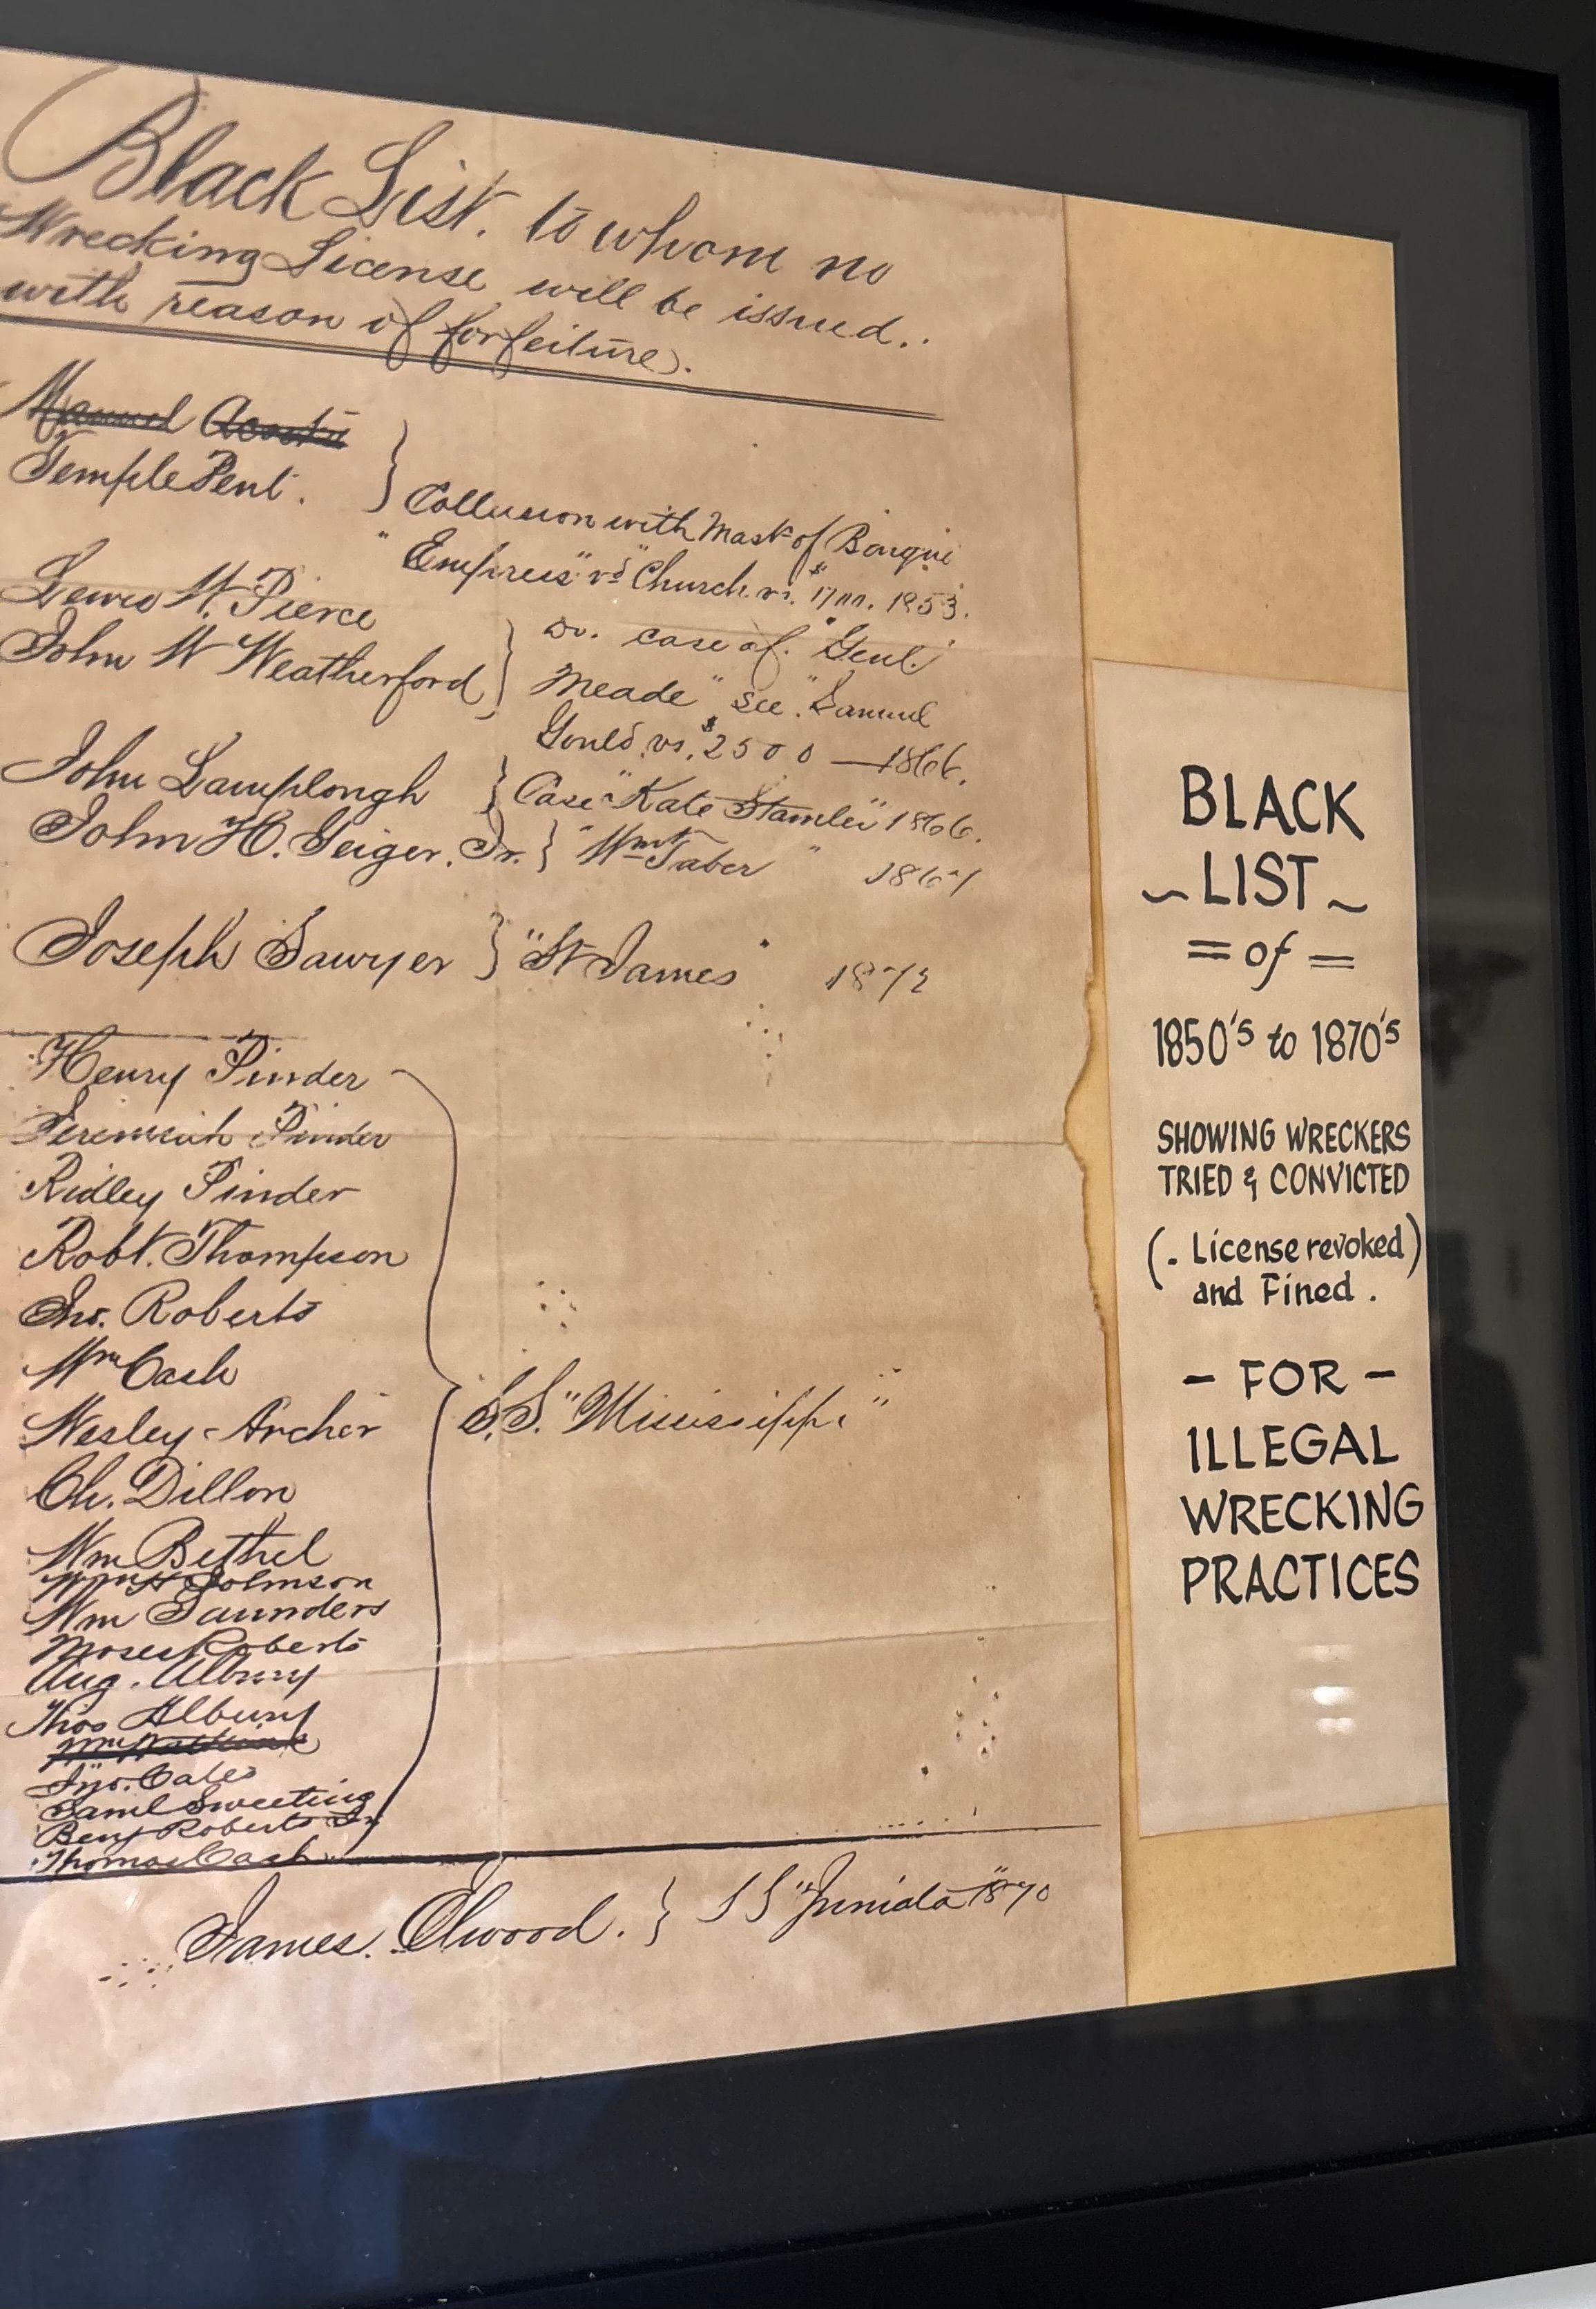 Black List. to whom no
Wrecking License will be issued..
with reason of forfeiture.
Manuel Acosta
Temple Pent. } Collusion with Mast of Barque
"Empress" vs "Church vs. 1853.
Lewis W. Pierce
John W Weatherford } Do. case of. "Genl.
Meade" see. "Samuel
Gould vs. $2500 — 1866.
John Lamplough } Case "Kate Stamler" 1866.
John H. Geiger. Jr. } "Wm Taber"
Joseph Sawyer } "St James" 1872
Henry Pinder
Jeremiah Pinder
Ridley Pinder
Robt. Thompson
Jno. Roberts
Wm Cash
Wesley Archer
S.S. "Mississippi"
Ch. Dillon
Wm Bethel
Wm H Johnson
Wm Saunders
Moses Roberts
Aug. Albury
Thos Albury
Wm
Jno. Cates
Saml Sweeting
Benj Roberts Jr
Thomas Cash
James. Elwood. } S S "Juniata" 1870
BLACK
~ LIST ~
= of =
1850'S to 1870'S
SHOWING WRECKERS
TRIED & CONVICTED
(. License revoked)
and Fined .
- FOR -
ILLEGAL
WRECKING
PRACTICES